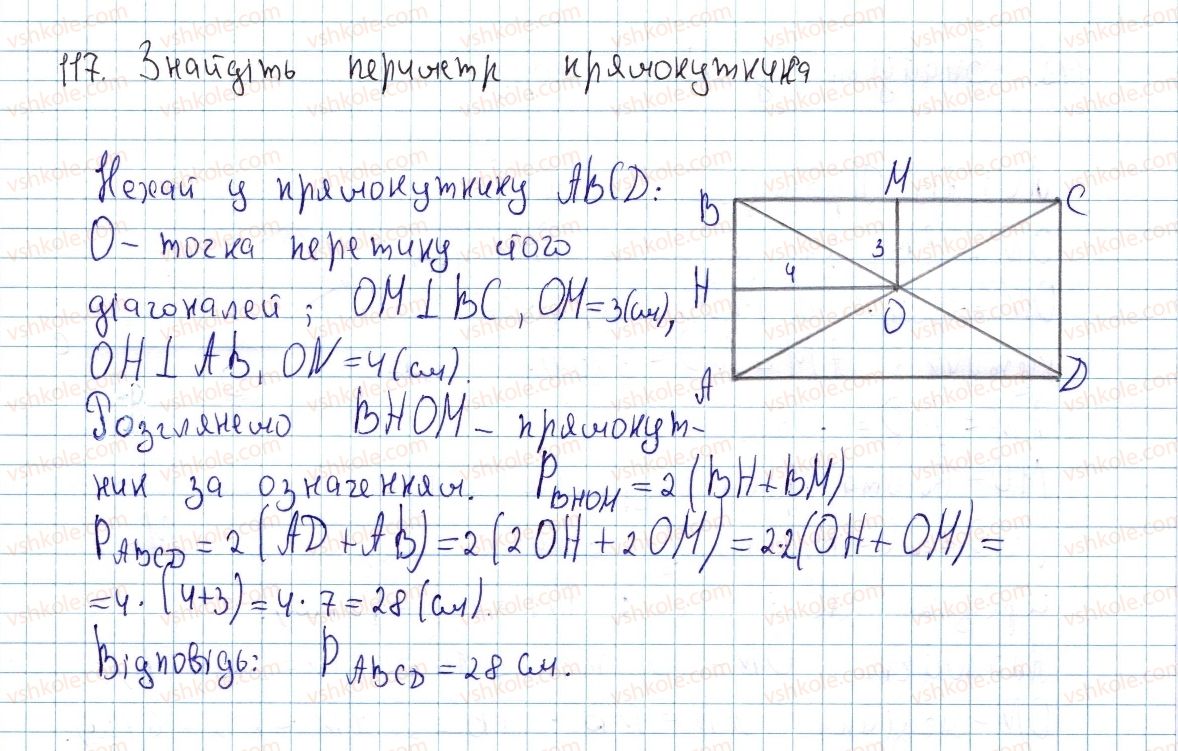 117. Знайдіть периметр прямокутника
Нехай у прямокутнику ABCD:
O - точка перетину його
діагоналей; OM⊥BC, OM=3(см),
OH⊥AB, ON=4(см).
Розглянемо BHOM - прямокут-
ник за означенням. P BHOM = 2(BH+BM)
P ABCD = 2(AD+AB)=2(2OH+2OM)=2·2(OH+OM)=
=4·(4+3)=4·7=28(см).
Відповідь: P ABCD = 28 см.
B M C
3
H 4
O
A D